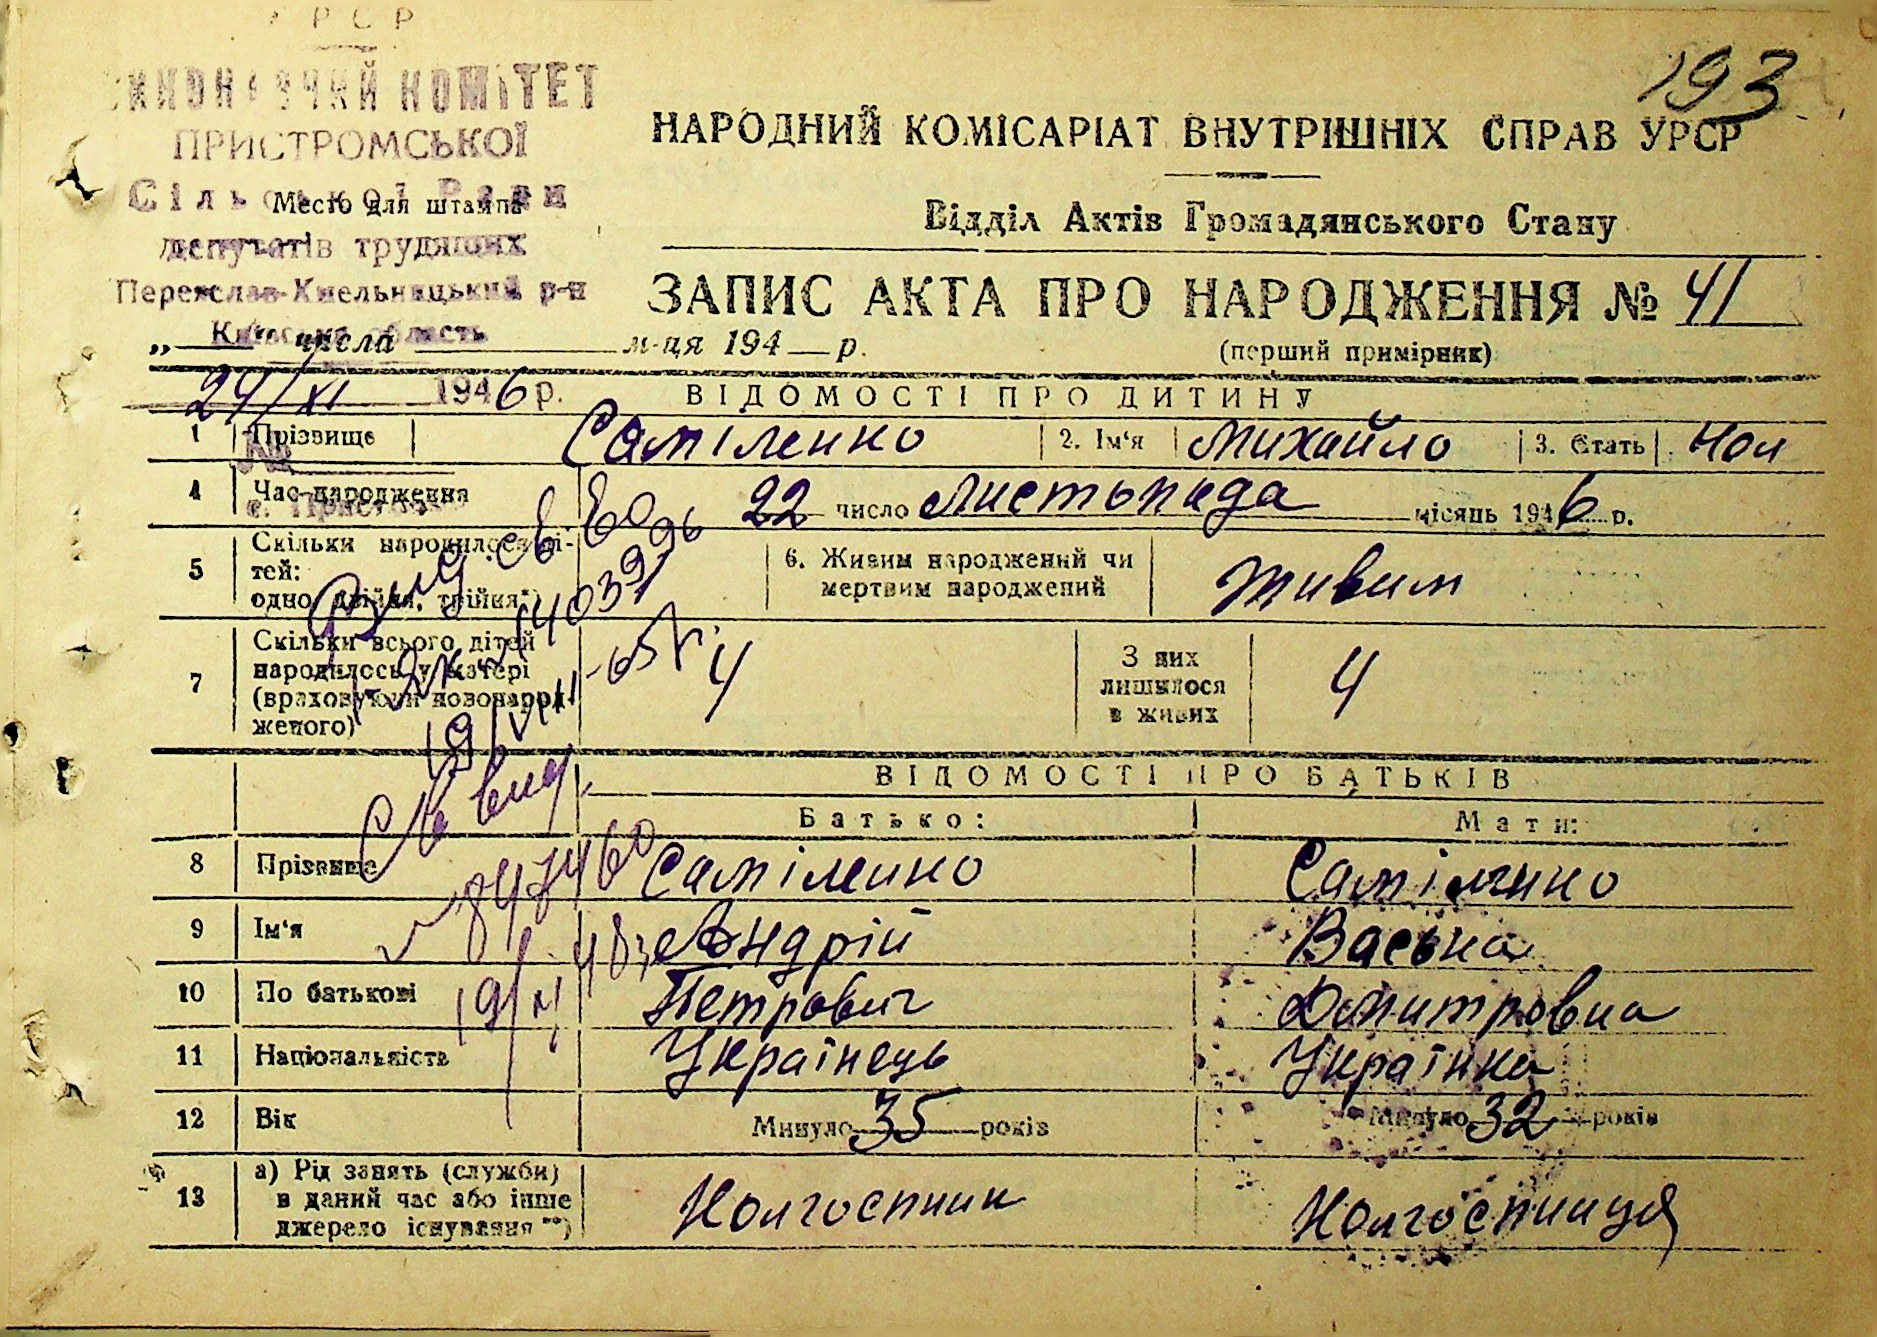 УРСР
193
ВИКОНАВЧИЙ КОМІТЕТ
ПРИСТРОМСЬКОЇ
Сільської Ради
Место для штампа
депутатів трудящих
Переяслав-Хмельницький р-н
Київська область
НАРОДНИЙ КОМІСАРІАТ ВНУТРІШНІХ СПРАВ УРСР
Відділ Актів Громадянського Стану
ЗАПИС АКТА ПРО НАРОДЖЕННЯ № 41
„ “ числа м-ця 194 р.
(перший примірник)
24/XI 1946 р.
ВІДОМОСТІ ПРО ДИТИНУ
№
1 Прізвище Самійленко 2. Ім‘я Михайло 3. Стать Чол
4 Час народження 22 число Листопада місяць 1946 р.
5 Скільки народилося ді-
тей:
одно, двійня, трійня*)
6. Живим народжений чи
мертвим народжений
живим
7 Скільки всього дітей
народилось у матері
(враховуючи новонарод-
женого)
4
З них
лишилося
в живих
4
Вид. св. ЕЮ
№ 403996
19/VIII-65 г.
Св вид.
№ 847460
ВІДОМОСТІ ПРО БАТЬКІВ
Батько: Мати:
8 Прізвище Саміленко Саміленко
9 Ім‘я Андрій Васька
10 По батькові Петрович Дмитровна
11 Національність Українець Українка
12 Вік Минуло 35 років Минуло 32 років
13 а) Рід занять (служби)
в даний час або інше
джерело існування **)
Колгоспник Колгоспниця